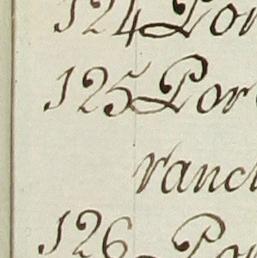 124 Por
125 Por
ranc
126 Por